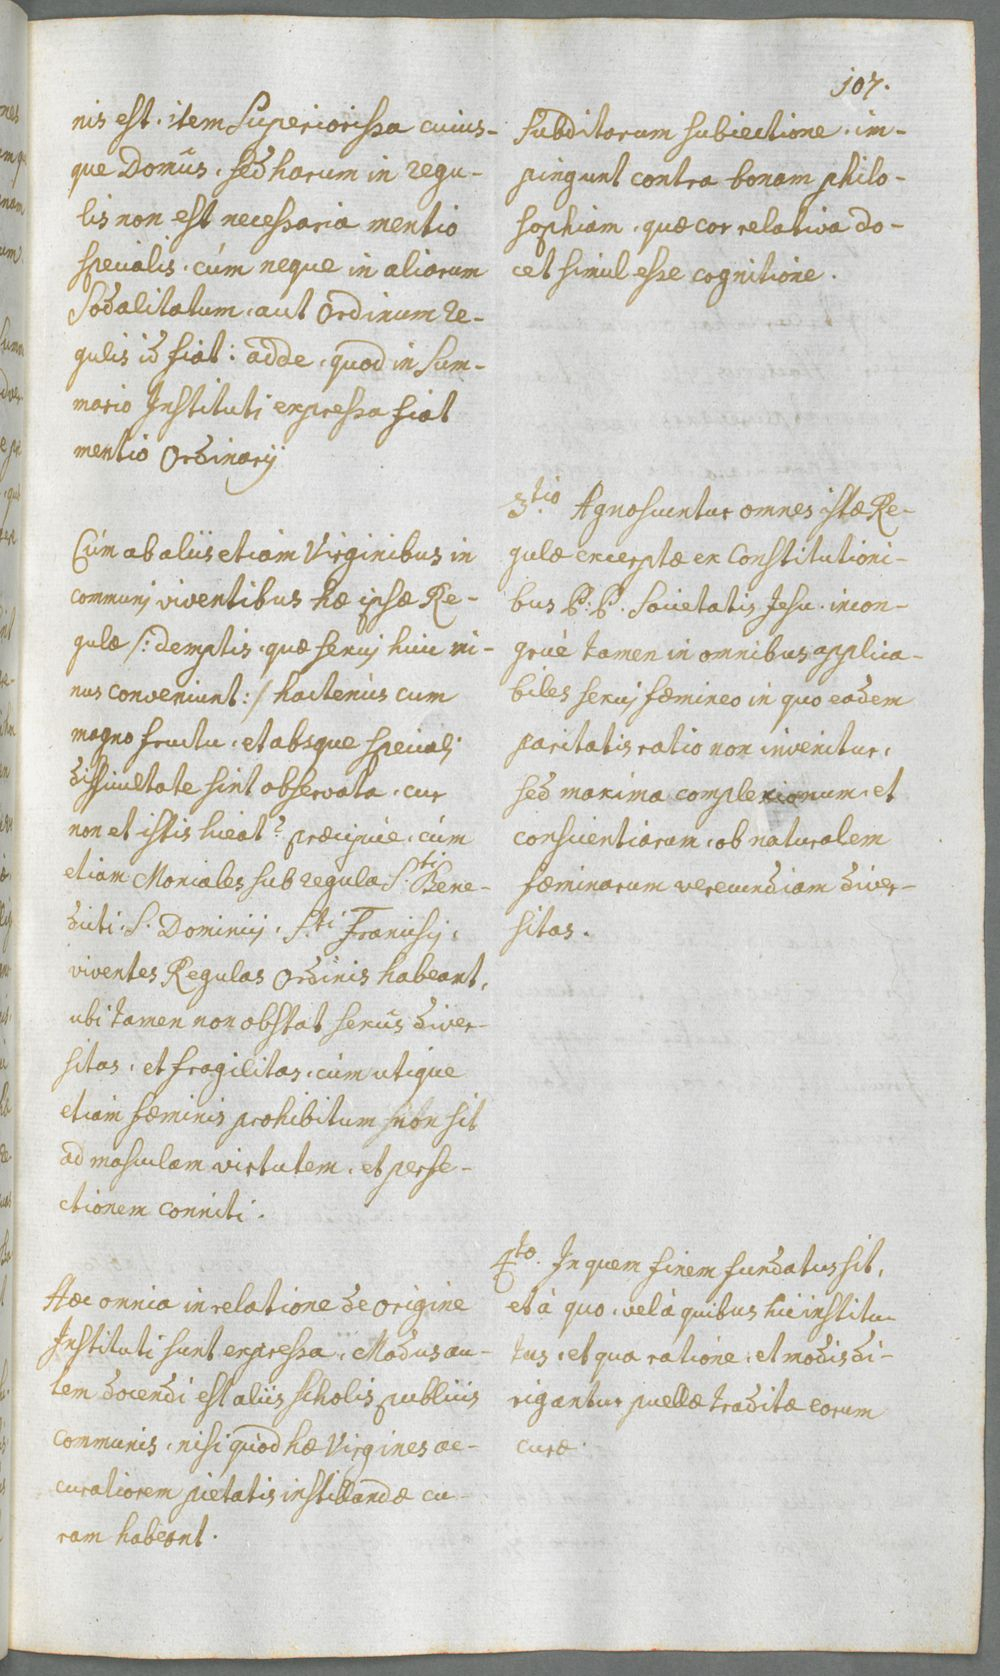 107.
nis est. item Superiorissa cuius-
que Domûs, sed harum in regu-
lis non est necessaria mentio
specialis. cúm neque in aliarum
Sodalitatum, aut Ordinum re-
gulis id fiat: adde, quod in Sum-
mario Instituti expressa fiat
mentio Ordinarij
Cúm ab aliis etiam Virginibus in
communj viventibus hæ ipsæ Re-
gulæ /: demptis, quæ sexuj huic mi-
nus conveniunt :/ hactenùs cum
magno fructu, et absque specialj
difficultate sint observata, cur
non et istis liceat? præcipúe, cúm
etiam Moniales sub regula S.ti Bene-
dicti, S. Dominicj, S.ti Francisci,
viventes Regulas Ordinis habeant,
ubi tamen non obstat sexûs diver-
sitas, et fragilitas, cúm utique
etiam fæminis prohibitum non sit
ad masculam virtutem, et perfe-
ctionem conniti.
Hæc omnia in relatione de origine
Instituti sunt expressa, Modus au-
tem docendi est aliis scholis publicis
communis, nisi quód hæ Virgines ac-
curatiorem pietatis instillandæ cu-
ram habeant.
subditorum subiectione, im-
pingunt contra bonam philo-
sophiam, quæ cor relativa do-
cet simul esse cognitione.
3.tio Agnoscuntur omnes istæ Re-
gulæ excerptæ ex Constitutioni-
bus P: P. Societatis Jesu, incon-
grué tamen in omnibus applica-
biles sexuj fæmineo in quo eadem
paritatis ratio non invenitur,
sed maxima complexionum, et
conscientiarum, ob naturalem
fæminarum verecundiam diver-
sitas.
4.to In quem finem fundatus sit,
et à quo, vel à quibus hic institu-
tus, et qua ratione, et modis di-
rigantur puellæ traditæ eorum
curæ.